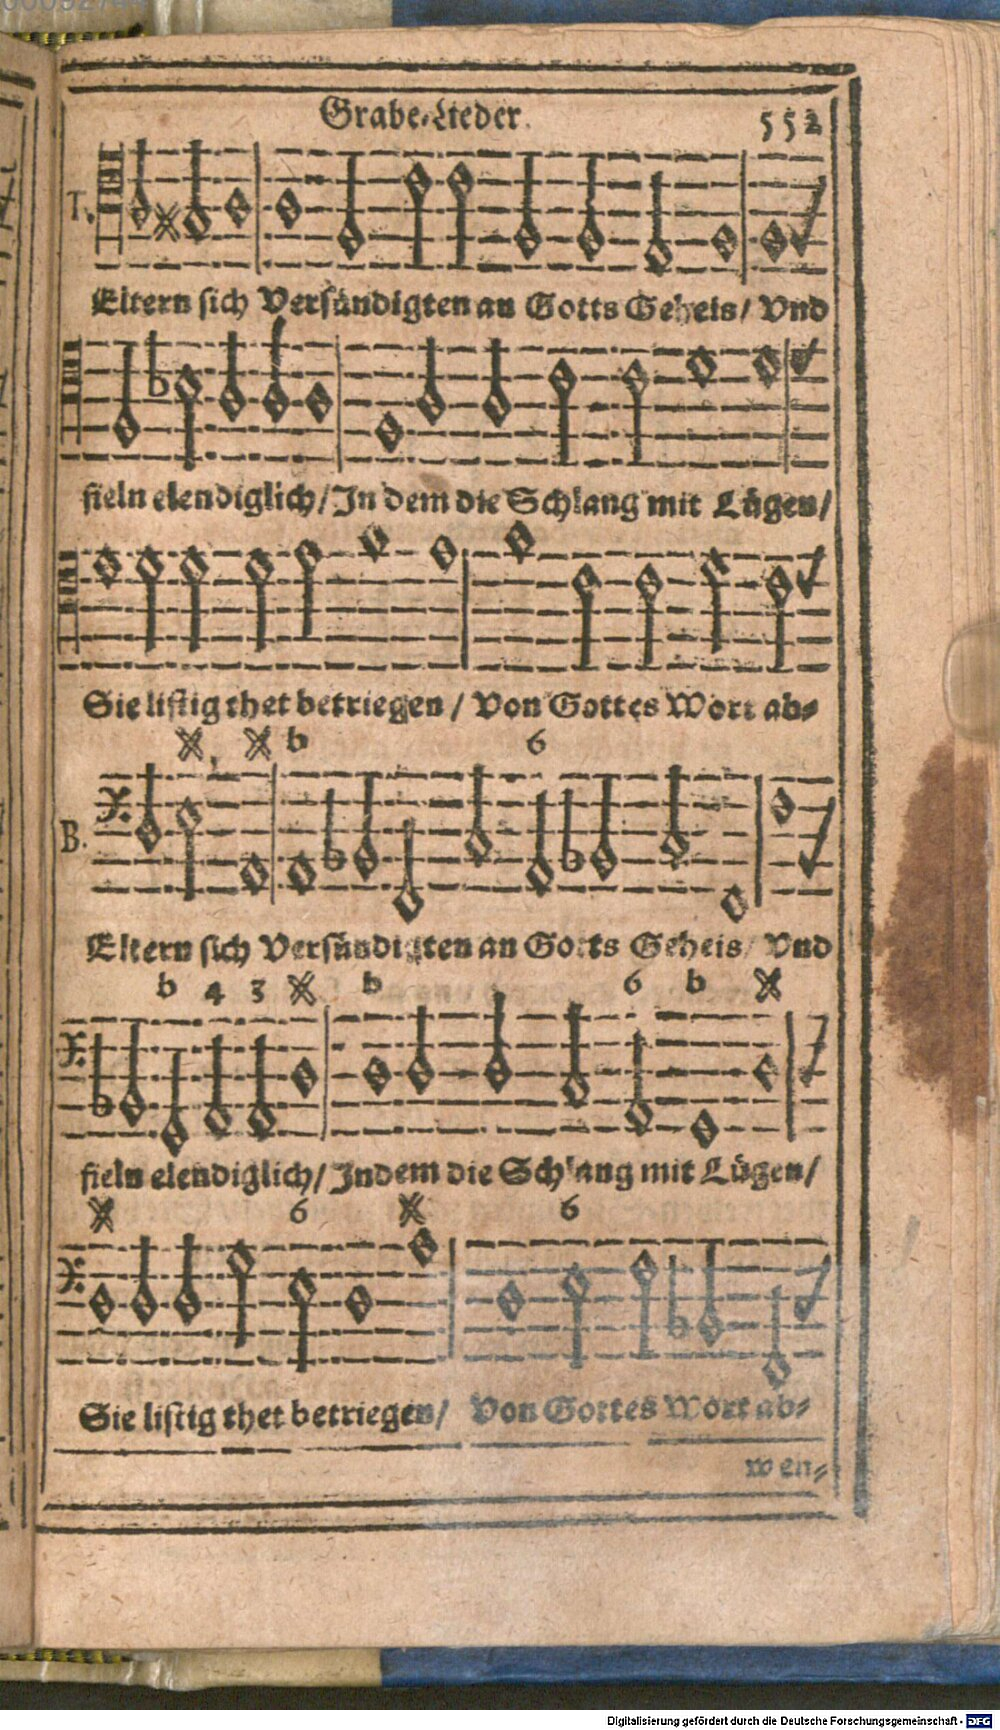 Grabe-Lieder. 552
T.
Eltern sich Versündigten an Gotts Geheis/ Vnd
fieln elendiglich/ In dem die Schlang mit Lügen/
Sie listig thet betriegen / Von Gottes Wort ab-
b 6
B.
Eltern sich Versündigten an Gotts Geheis/ Vnd
b 4 3 b 6 b
fieln elendiglich/ Indem die Schlang mit Lügen/
6 6
Sie listig thet betriegen/ Von Gottes Wort ab-
wen-
Digitalisierung gefördert durch die Deutsche Forschungsgemeinschaft - DFG